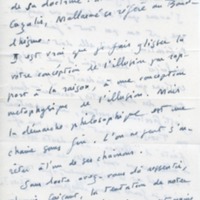 de sa doctrine
Cazalis, Mallarmé se réfère au Boud-
dhisme.
Il est vrai que je fais glisser là
votre conception de l'illusion par rap-
port à la raison, à une conception
métaphysique de l'illusion. Mais
la démarche philosophique est une
chaîne sans fin. L'on ne peut s'ar-
rêter à l'un de ses chaînons.
Sans doute avez-vous dû ressentir,
chemin faisant, la tentation de notre